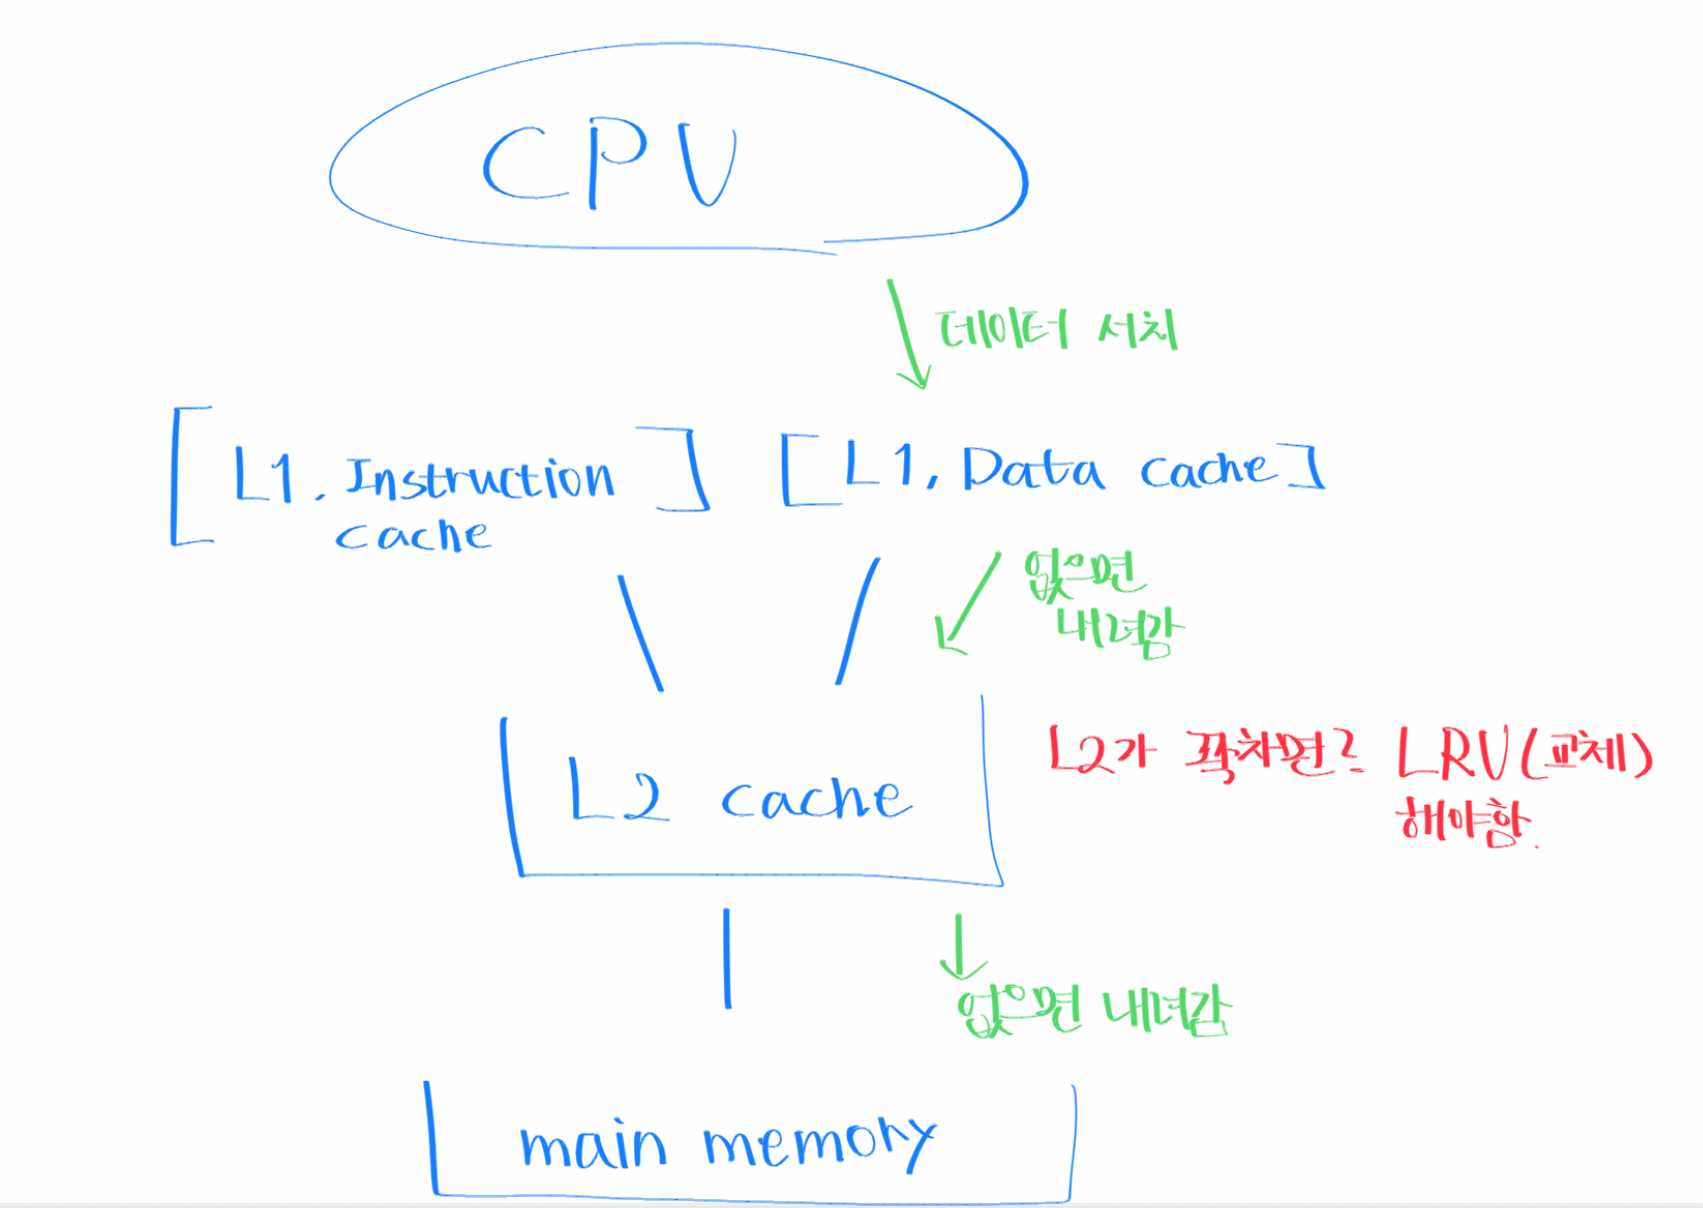 CPU
데이터 서치
L1, Instruction
cache
L1, Data cache
없으면
내려감
L2가 꽉차면? LRU(교체)
해야함.
L2 cache
없으면 내려감
main memory